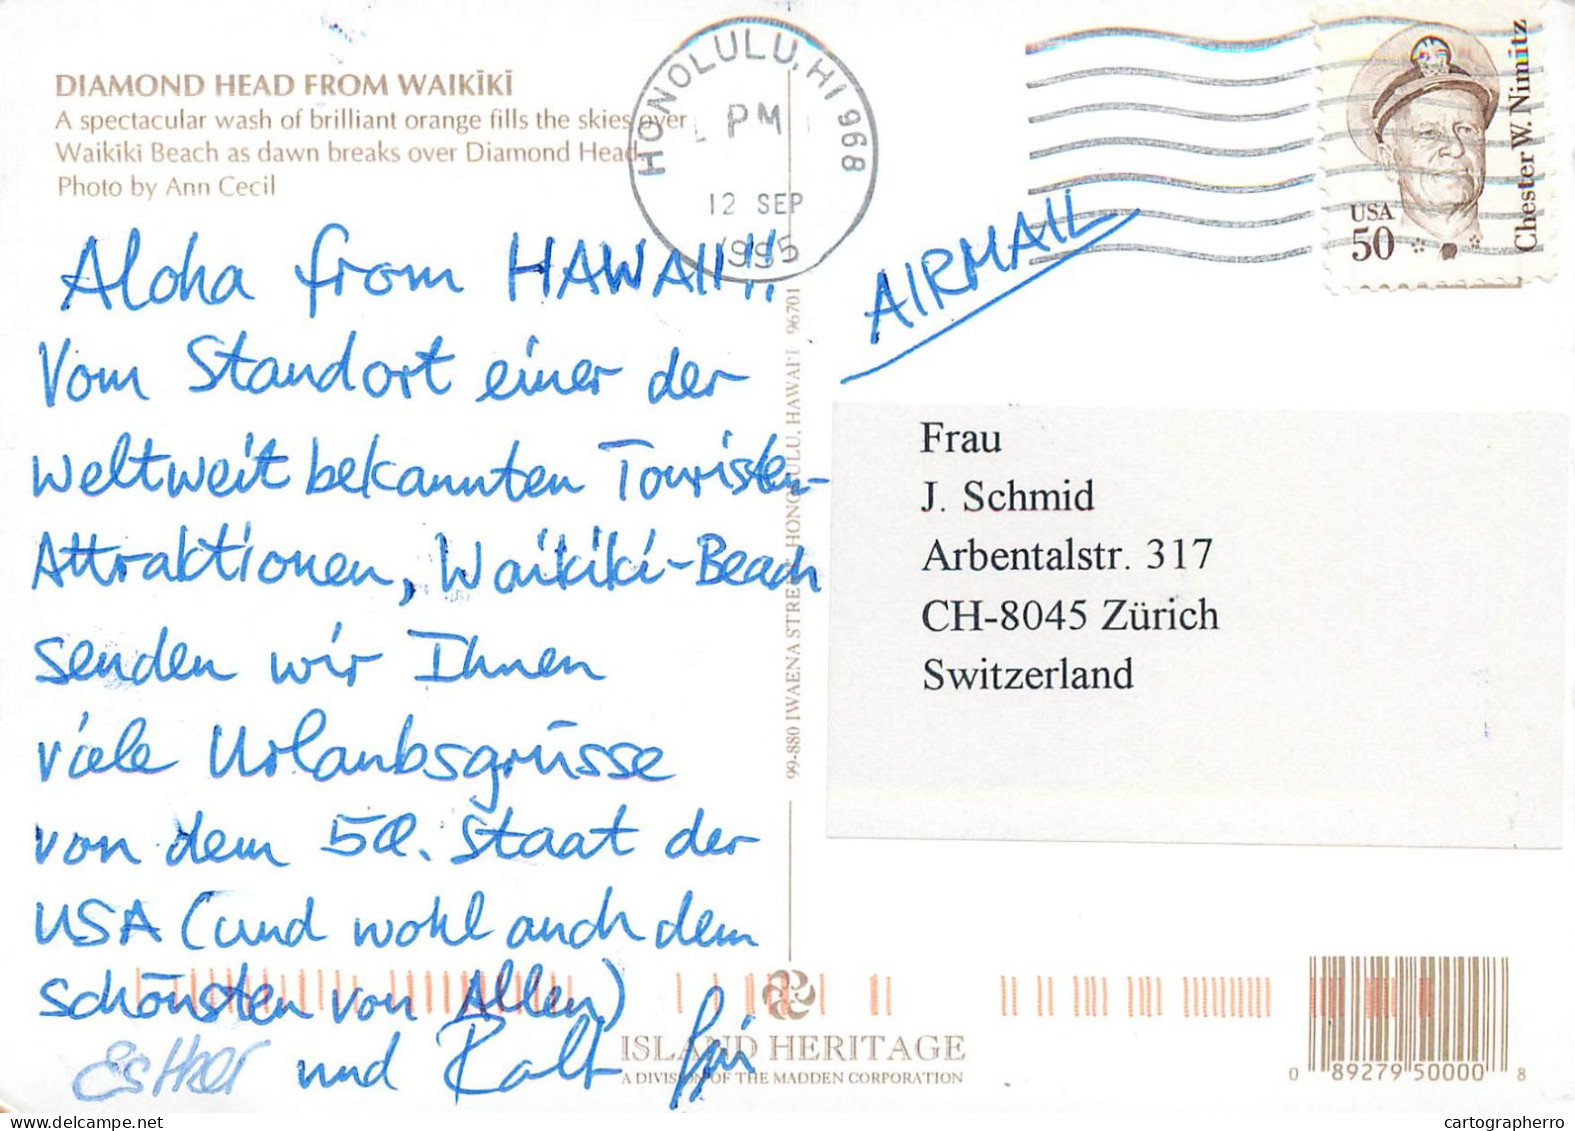 DIAMOND HEAD FROM WAIKĪKĪ
A spectacular wash of brilliant orange fills the skies over
Waikīkī Beach as dawn breaks over Diamond Head
Photo by Ann Cecil
HONOLULU, HI 968
PM
12 SEP
1995
USA
50
Chester W. Nimitz
AIRMAIL
Aloha from HAWAII!!
Vom Standort einer der
weltweit bekannten Touristen-
Attraktionen, Waikiki-Beach
senden wir Ihnen
viele Urlaubsgrüsse
von dem 50. Staat der
USA (und wohl auch dem
schönsten von Allen)
Esther und Ralf
Frau
J. Schmid
Arbentalstr. 317
CH-8045 Zürich
Switzerland
99-880 IWAENA STREET, HONOLULU, HAWAI'I 96701
ISLAND HERITAGE
A DIVISION OF THE MADDEN CORPORATION
0 89279 50000 8
cartographerro